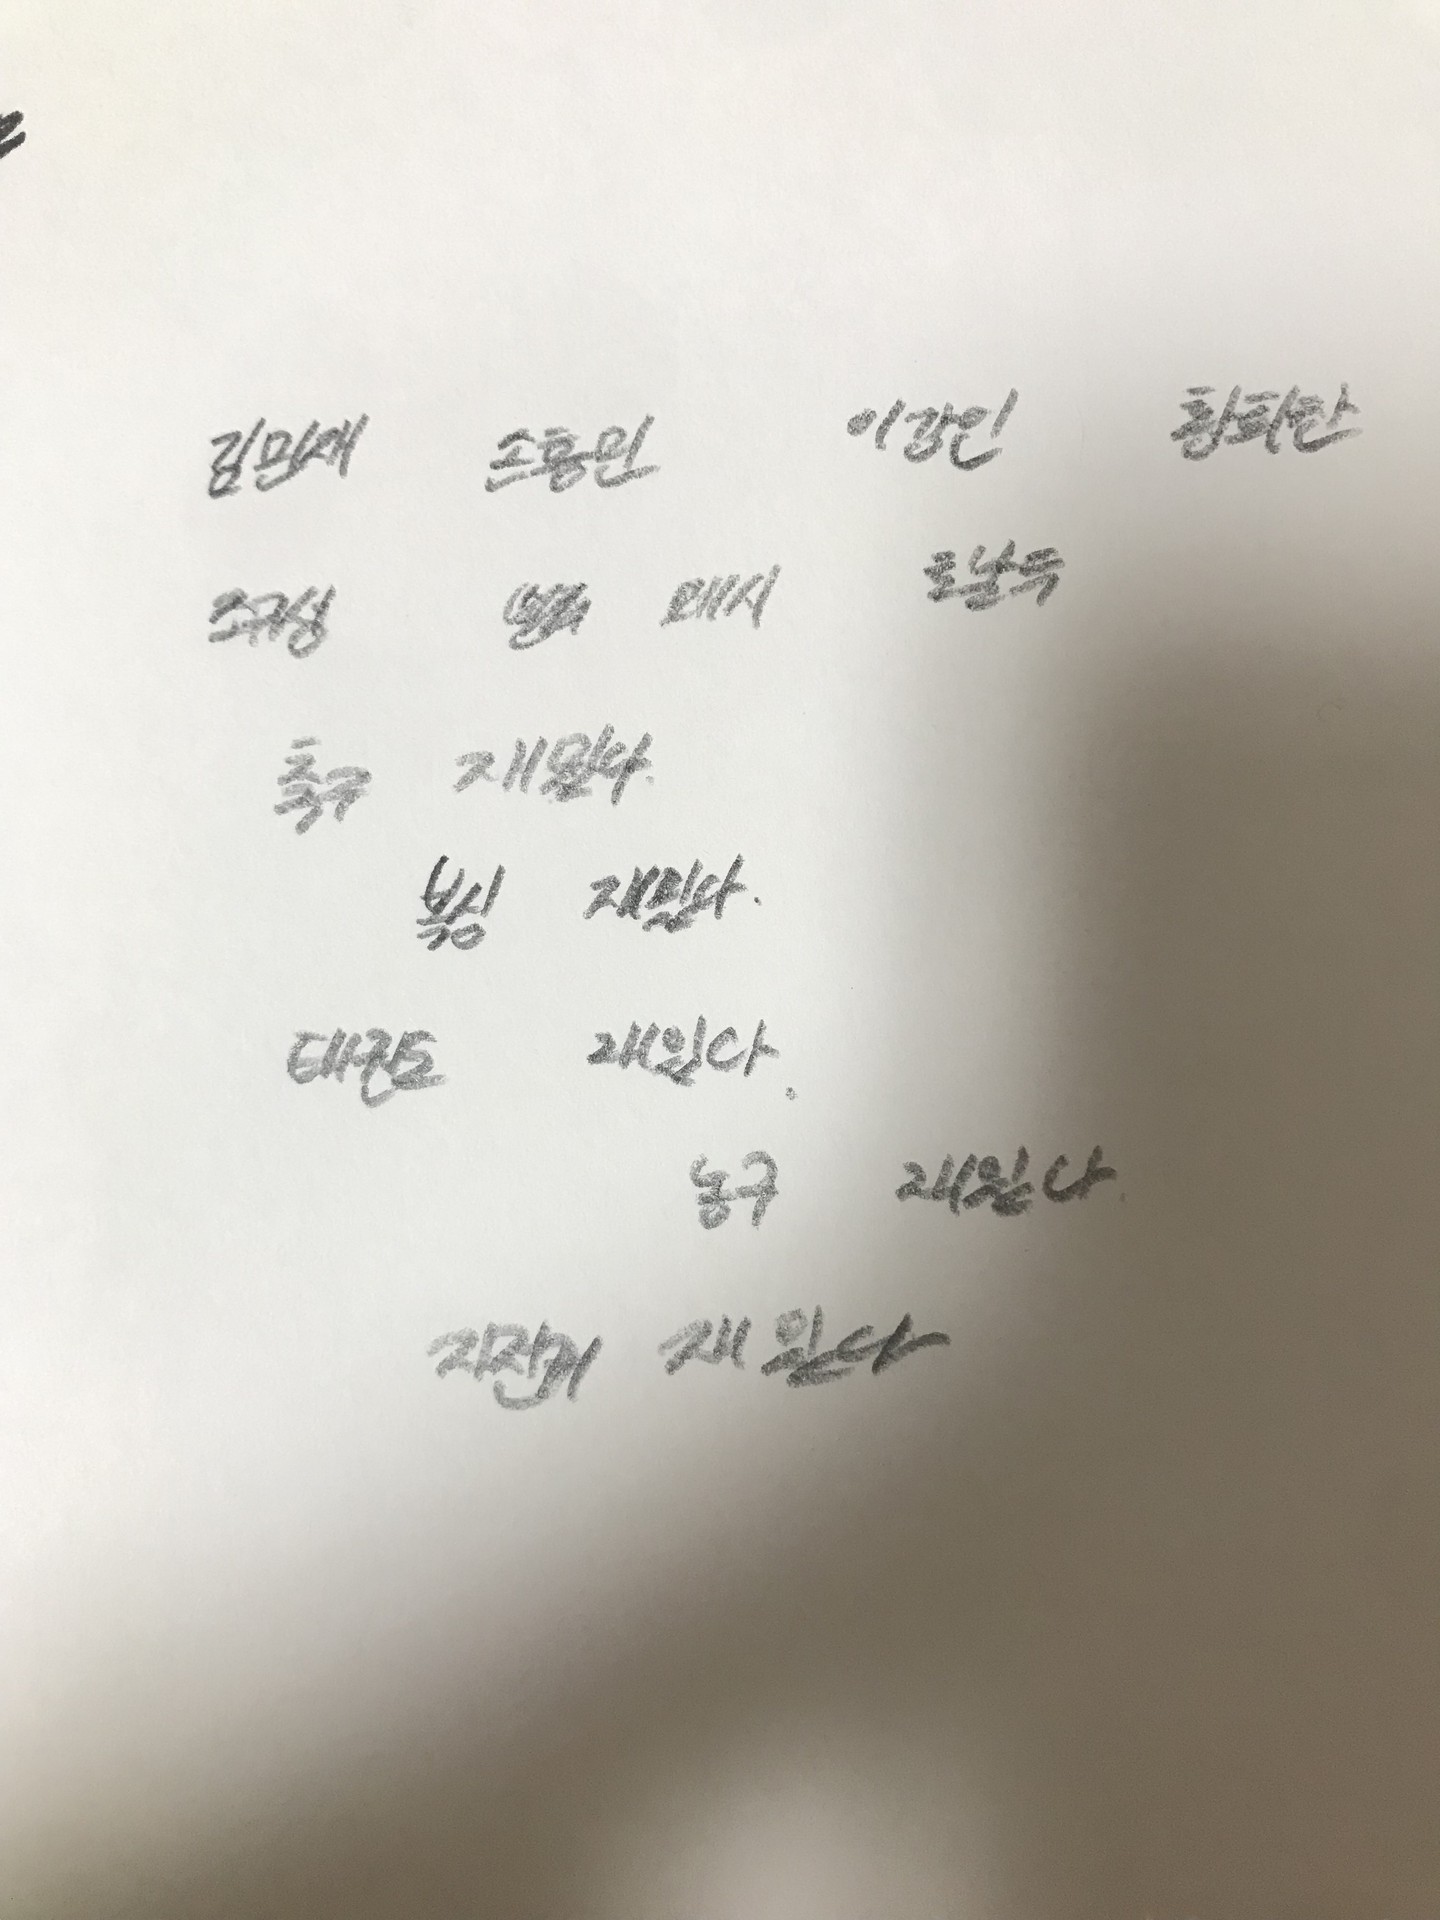 김민재 손흥민 이강인 황희찬
조규성 메시 호날두
축구 재밌다.
복싱 재밌다.
태권도 재밌다.
농구 재밌다.
자전거 재밌다